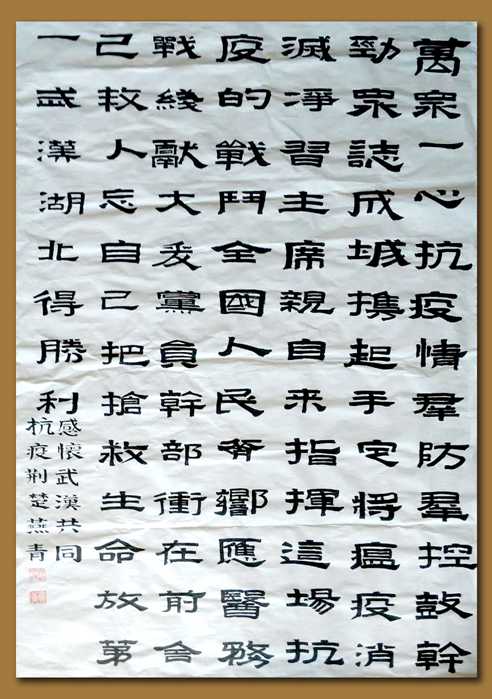 萬眾一心抗疫情羣防羣控鼓幹
勁眾誌成城携起手定將瘟疫消
滅凈習主席親自来指揮這場抗
疫的戰鬥全國人民齊響應醫務
戰綫獻大爱黨員幹部衝在前舍
己救人忘自己把搶救生命放第
一武漢湖北得勝利
感懷武漢共同
抗疫荆楚燕青